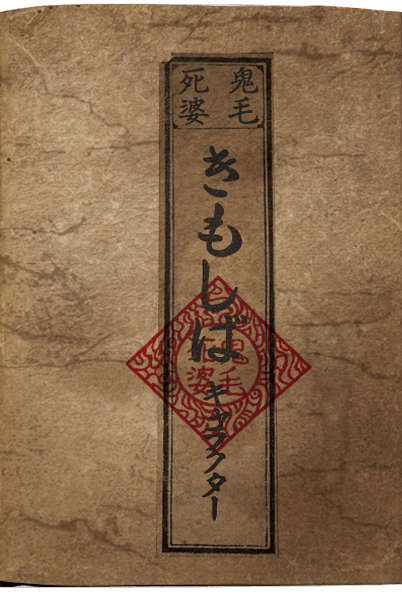 鬼毛
死婆
きもしば
キャラクター
鬼毛
死婆